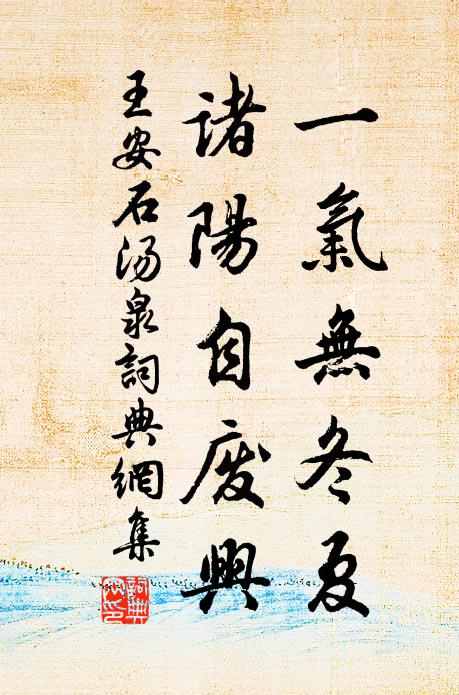 一氣無冬夏
諸陽自废興
王安石汤泉詞典網集